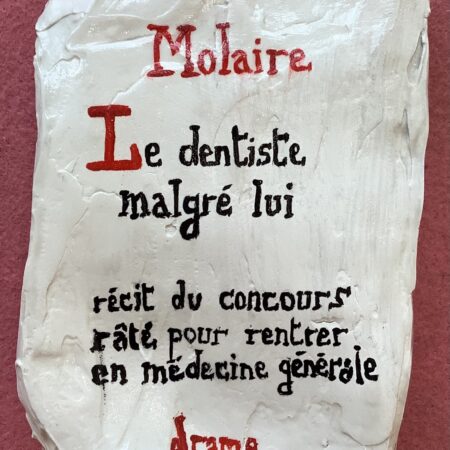 Molaire
Le dentiste
malgré lui
récit du concours
râté pour rentrer
en médecine générale
drame